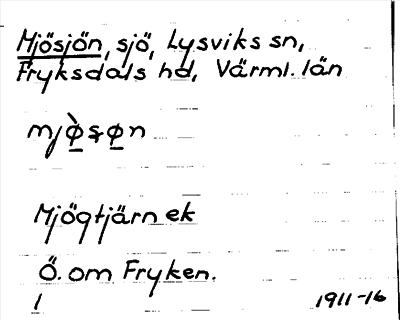 Mjösjön, sjö, Lysviks sn,
Fryksdals hd, Värml. län
Mjögtjärn ek
Ö. om Fryken.
1
1911-16